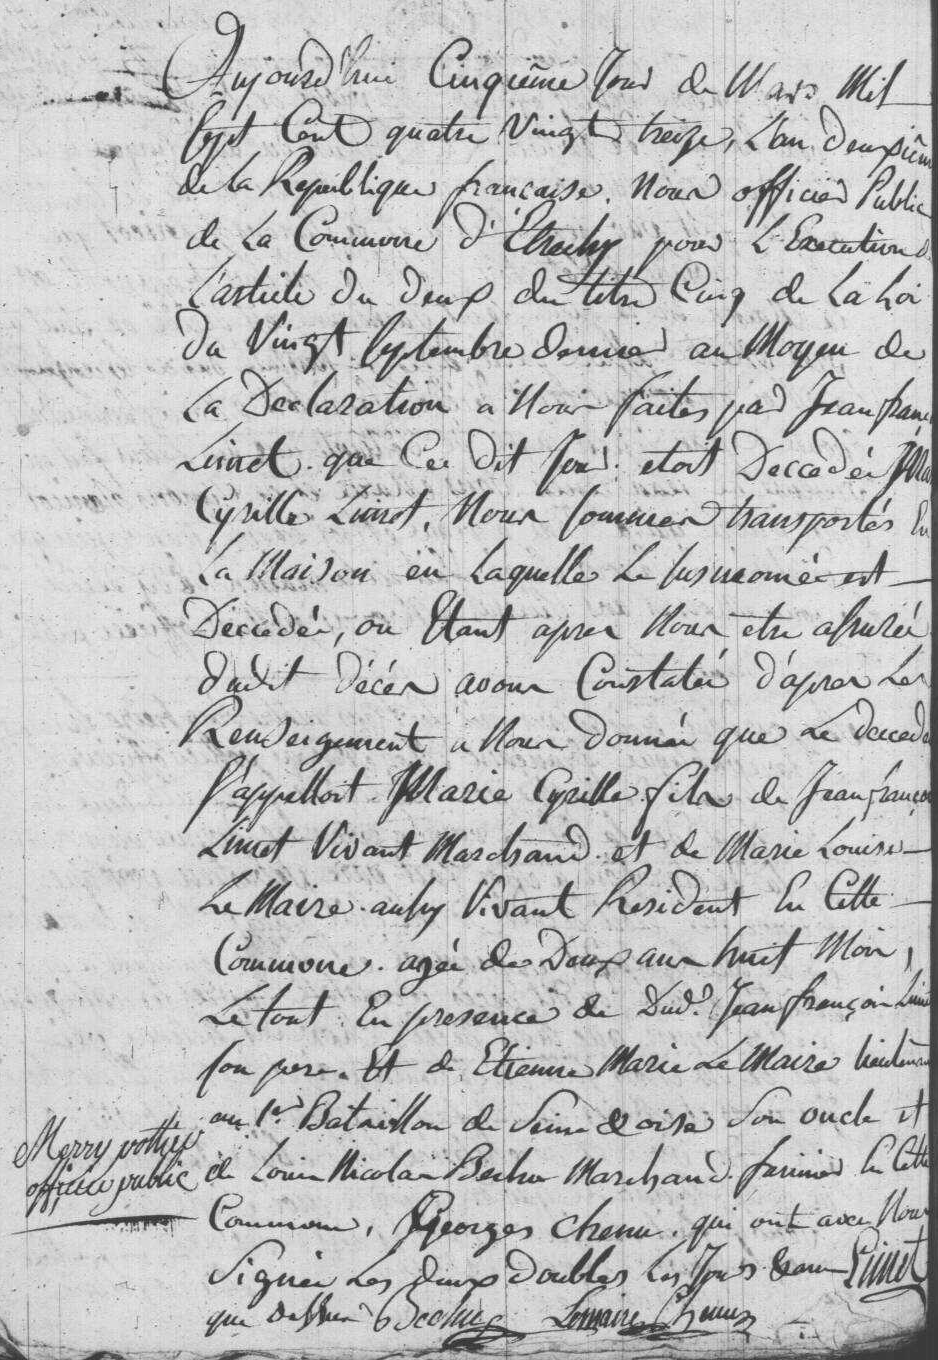 Aujourd'huy Cinquiême Jour de Mars Mil
Sept Cent quatre Vingt treize, L'an deuxiêm
de la Republique francaise. Nous officier Public
de La Commune d'Etrechy pour L'Execution d
L'article du deux du titre Cinq de La Loi
du Vingt Septembre dernier au Moyen de
La Declaration a Nous faites par Jean franç
Linet que Ce dit Jour etoit Deccedée Mar
Cyrille Linet, Nous sommes transportés En
La Maison en Laquelle Le susnomée est
Deccedée, ou Etant apres Nous etre assurée
dudit décés avons Constatée d'apres Les
Renseignement a Nous donnée que Le decede
S'appelloit Marie Cyrille fils de Jean françoi
Linet Vivant Marchand et de Marie Louise
Le Maire aussy Vivant Resident En Cette
Commune agée de Deux ans huit Mois,
Le tout En presence de Dud. Jean françois Line
son pere. Et de Etienne Marie Le Maire lieutenan
au 1er Bataillon de Seine & oise Son oncle et
de Louis Nicolas Marchand fermier En Cette
Commune, Georges Chenu qui ont avec Nous
Signée Les deux doubles Les Jours & an Linet
que dessus Lemaire Chenu
Merry pottier
officie public